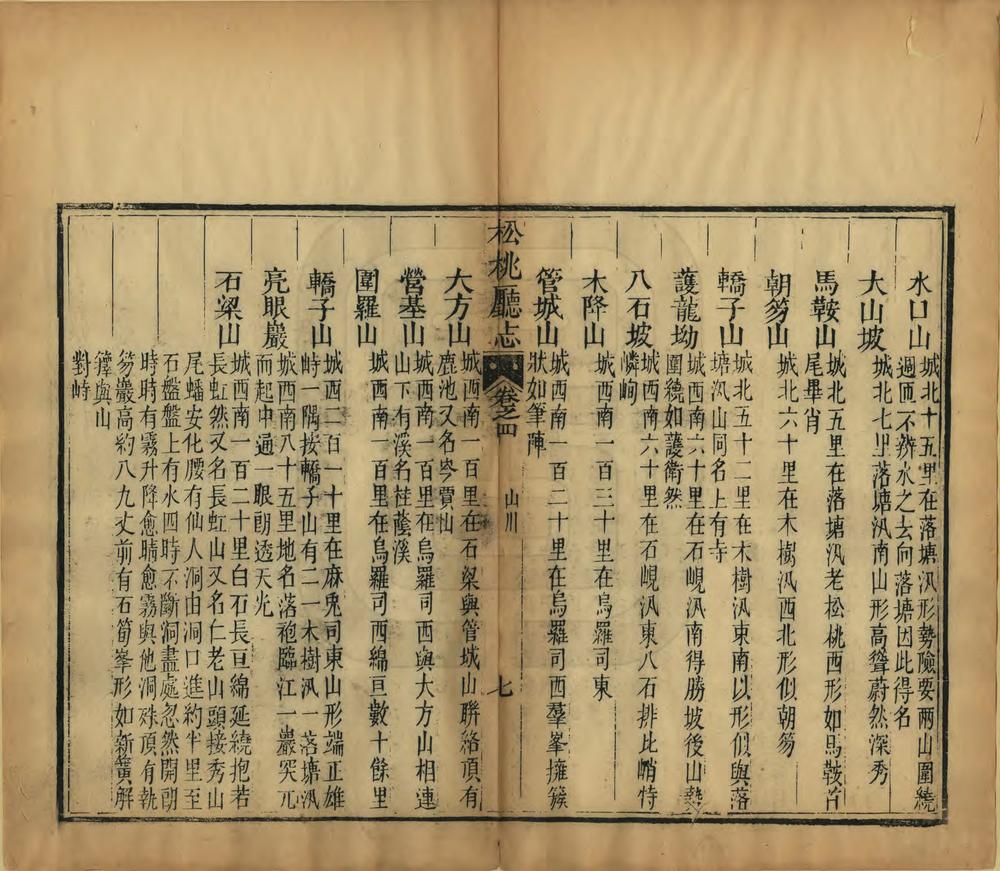 水口山城北十五里在落塘汛形勢險要兩山圍繞
週匝不辨水之去向落塘因此得名
大山坡城北七里落塘汛南山形高聳蔚然深秀
馬鞍山城北五里在落塘汛老松桃西形如馬鞍首
尾畢肖
朝笏山城北六十里在木樹汛西北形似朝笏
轎子山城北五十二里在木樹汛東南以形似與落
塘汛山同名上有寺
護龍坳城西南六十里在石峴汛南得勝坡後山勢
圍繞如護衛然
八石坡城西南六十里在石峴汛東八石排比峭特
嶙峋
木降山城西南一百三十里在烏羅司東
管城山城西南一百二十里在烏羅司西羣峯擁簇
狀如筆陣
松桃廳志 卷之四 山川 七
大方山城西南一百里在石梁與管城山聯絡頂有
鹿池又名岑賈山
營基山城西南一百里在烏羅司西與大方山相連
山下有溪名桂蔭溪
圍羅山城西南一百里在烏羅司西綿亘數十餘里
轎子山城西二百一十里在麻兎司東山形端正雄
峙一隅按轎子山有二一木樹汛一落塘汛
亮眼巖城西南八十五里地名落袍臨江一巖突兀
而起中通一眼朗透天光
石梁山城西南一百二十里白石長亘綿延繞抱若
長虹然又名長虹山又名仁老山頭接秀山
尾蟠安化腰有仙人洞由洞口進約半里至
石盤盤上有水四時不斷洞盡處忽然開朗
時時有霧升降愈晴愈霧與他洞殊頂有執
笏巖高約八九丈前有石筍峯形如新簧解
籜與山
對峙